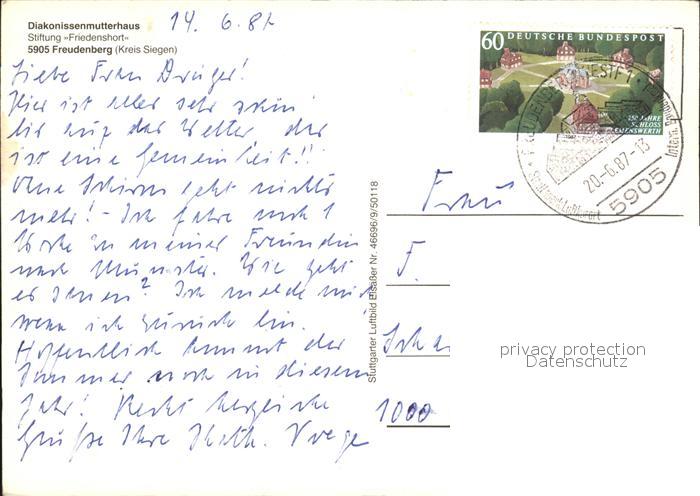 Diakonissenmutterhaus
Stiftung »Friedenshort«
5905 Freudenberg (Kreis Siegen)
14. 6. 87
Liebe Frau
Hier ist alles sehr schön
bis auf das Wetter, das
ist eine Gemeinheit!!
Ohne Schirm geht nichts
mehr! - Ich fahre noch 1
Woche zu meiner Freundin
nach Münster. Wie geht
es Ihnen? Ich melde mich
wenn ich zurück bin.
Hoffentlich kommt der
Sommer noch in diesem
Jahr! Recht herzliche
Grüße Ihre Kath.
Stuttgarter Luftbild Elsäßer Nr. 46696/9/50118
60 DEUTSCHE BUNDESPOST
250 JAHRE
SCHLOSS
CLEMENSWERTH
20.-6.87-13
5905
Frau
F.
1000
privacy protection
Datenschutz